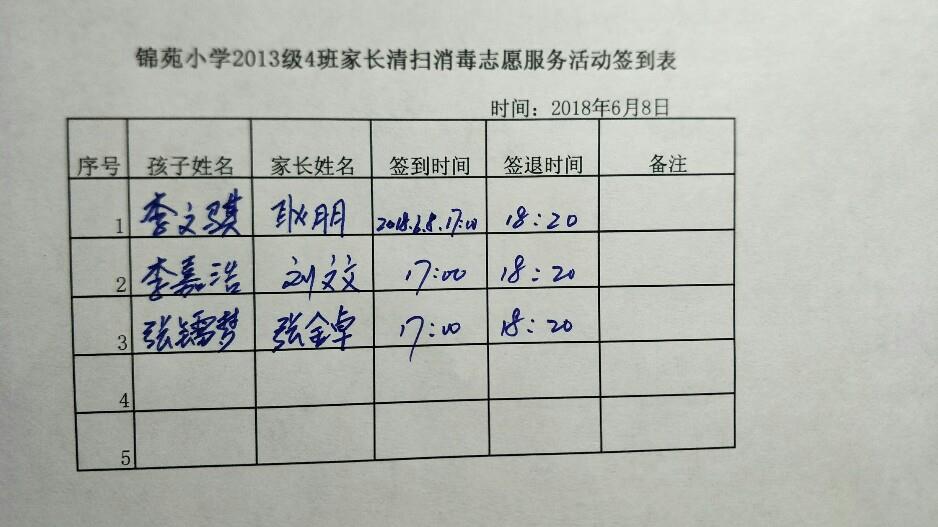 锦苑小学2013级4班家长清扫消毒志愿服务活动签到表
时间：2018年6月8日
序号 孩子姓名 家长姓名 签到时间 签退时间 备注
1 李文骐 耿朋 2018.6.8.17:00 18:20
2 李嘉浩 刘文文 17:00 18:20
3 张镭梦 张金卓 17:00 18:20
4
5